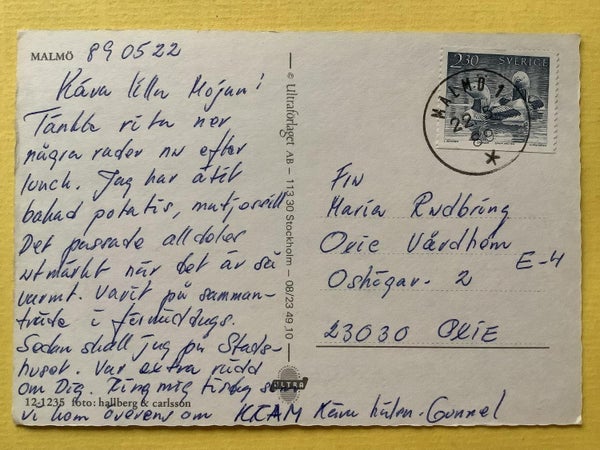 MALMÖ 890522
Kära lilla Mojan!
Tänkte rita ner
några rader nu efter
lunch. Jag har ätit
bakad potatis, matjessill
Det passade alldeles
utmärkt när det är så
varmt. Varit på samman-
träde i förmiddags.
Sedan skall jag på Stads-
huset. Var extra rädd
om Dig. Ring mig tisdag som
vi kom överens om KRAM Kära hälsn. Gunnel
12-1235 foto: hallberg & carlsson
© Ultraförlaget AB – 113 30 Stockholm – 08/23 49 10
ULTRA
2.30 SVERIGE
MALMÖ 1
22 -5 89
Frn
Maria Rudbring
Oxie Vårdhem
E-4
Oshögav. 2
23030 OXIE